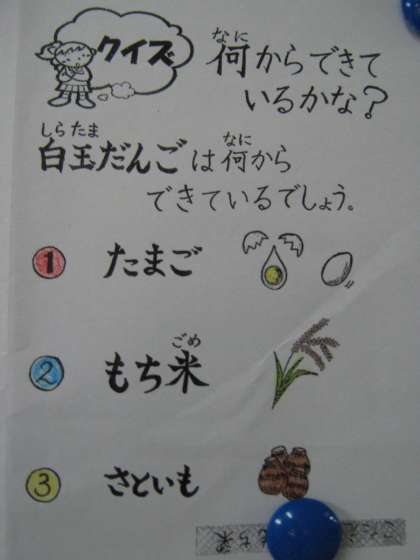 クイズ
何からできて
いるかな?
白玉だんごは何から
できているでしょう。
1 たまご
2 もち米
3 さといも